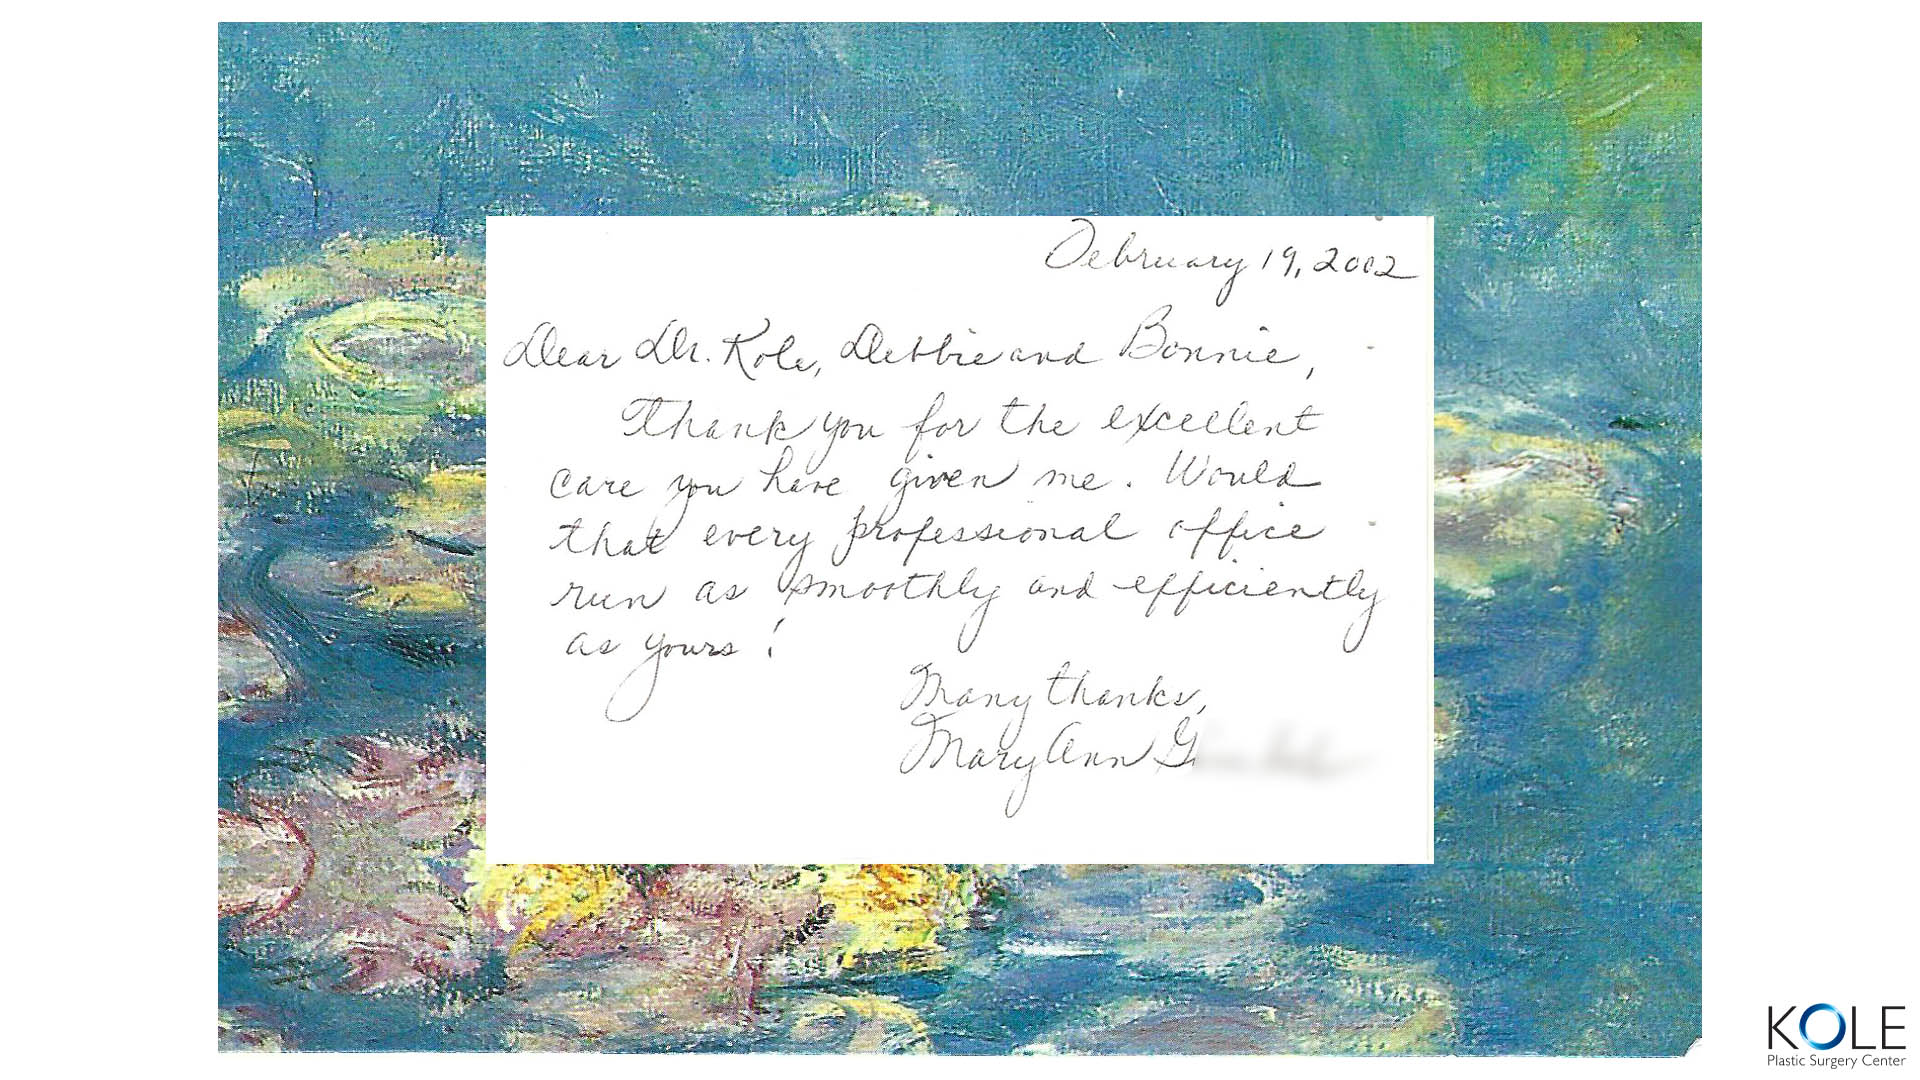 February 19, 2002
Dear Dr. Kole, Debbie and Bonnie,
Thank you for the excellent
care you have given me. Would
that every professional office
run as smoothly and efficiently
as yours!
Many thanks,
MaryAnn G
KOLE
Plastic Surgery Center